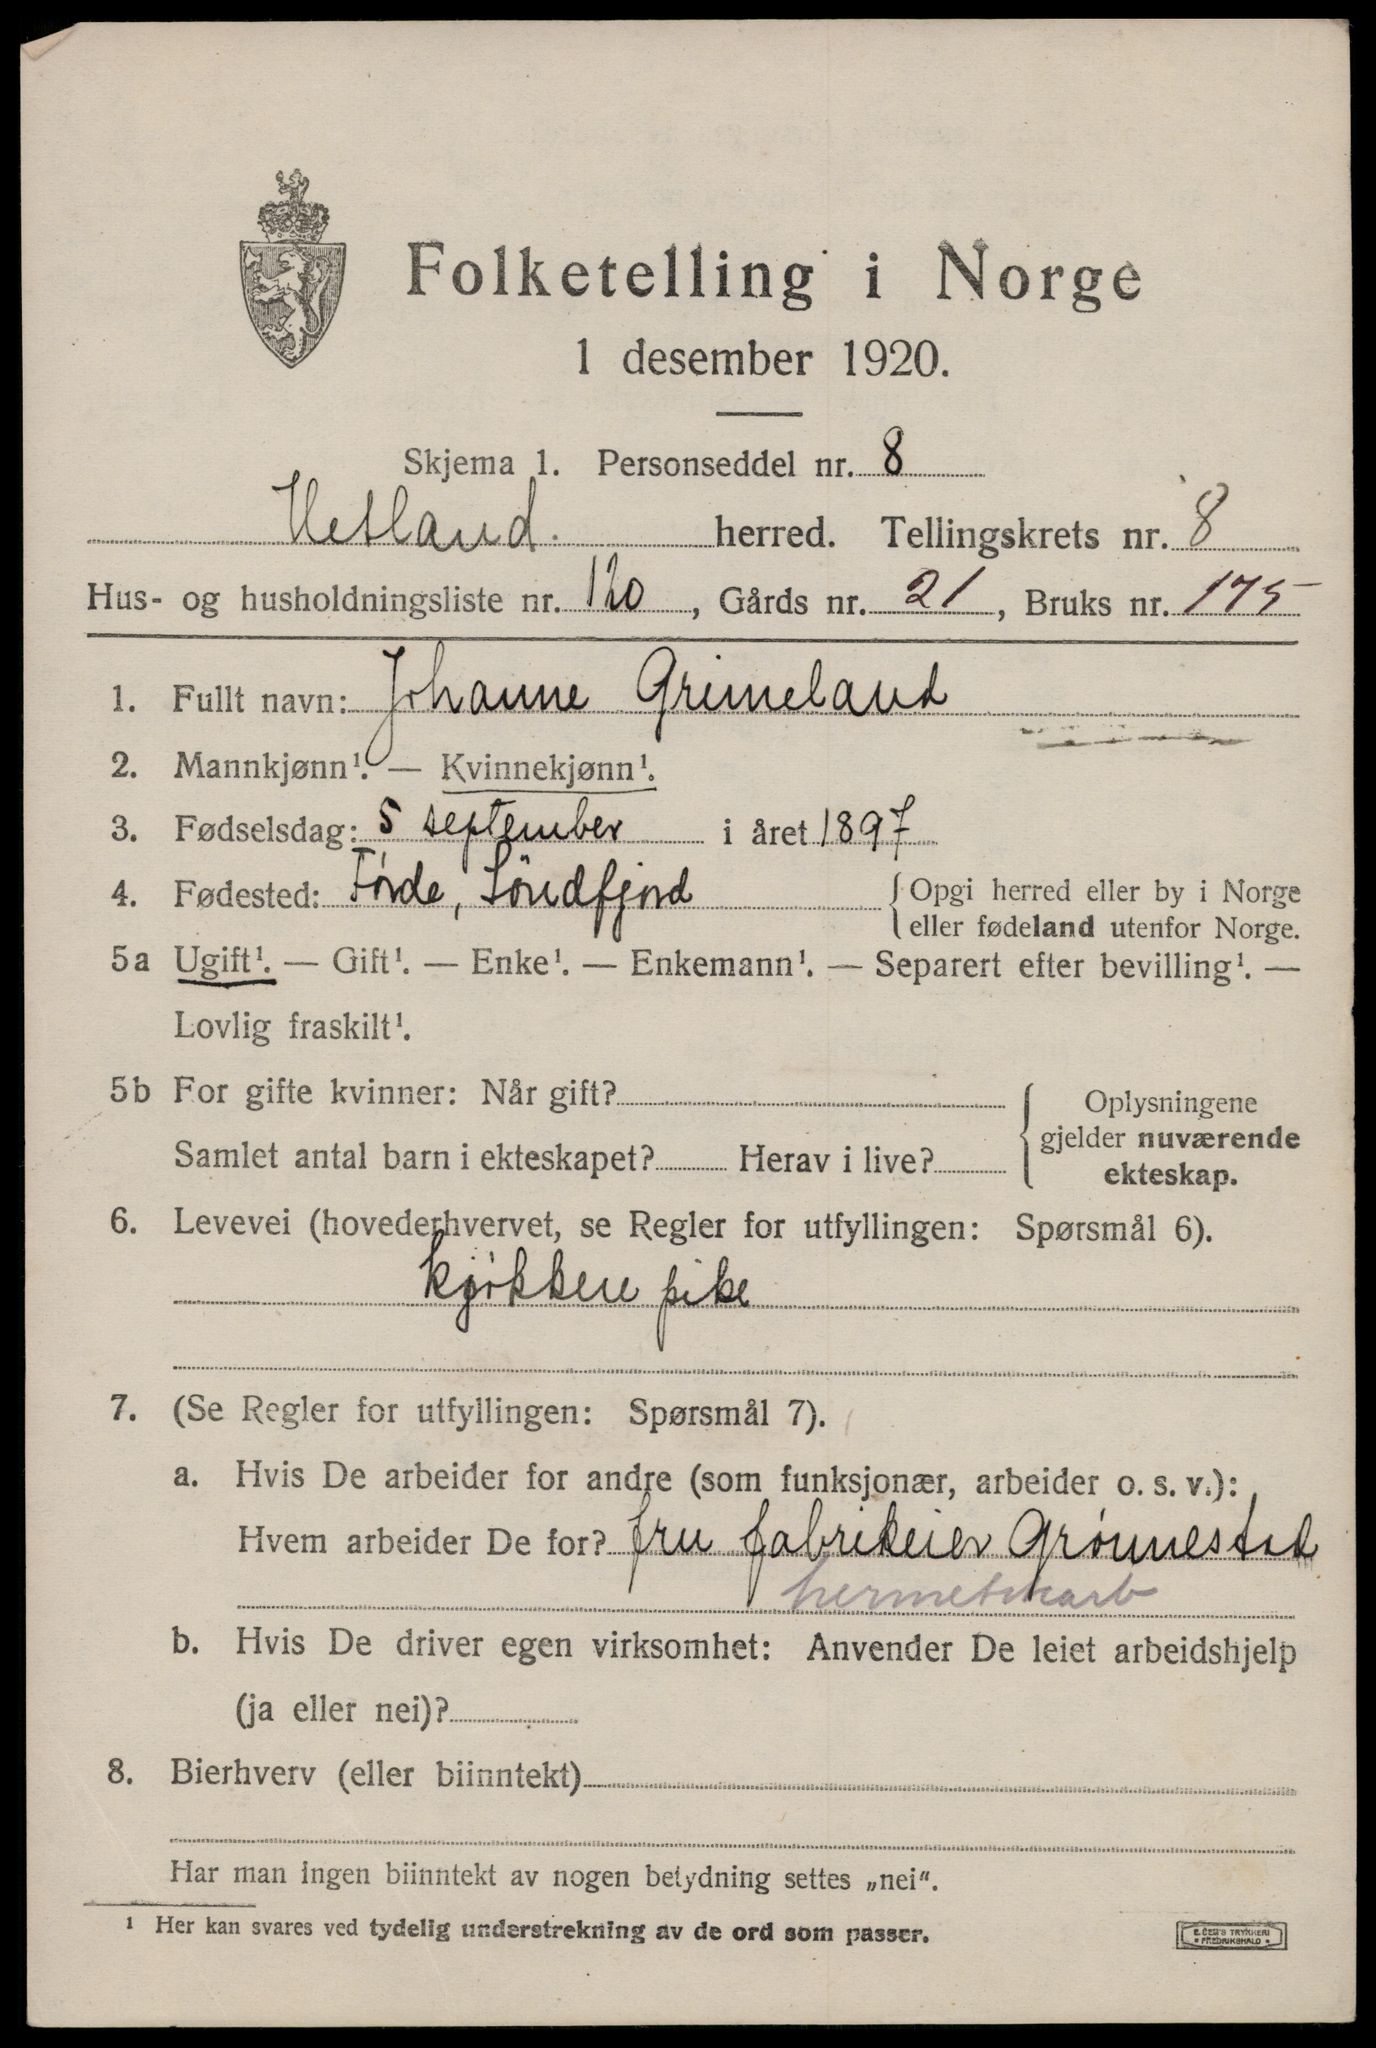 Folketelling i Norge
1 desember 1920.
Skjema 1. Personseddel nr. 8
Hetland. herred. Tellingskrets nr. 8
Hus- og husholdningsliste nr. 120, Gårds nr. 21, Bruks nr. 175
1. Fullt navn: Johanne Grimeland
2. Mannkjønn¹. — Kvinnekjønn¹.
3. Fødselsdag: 5 september i året 1897
4. Fødested: Førde, Söndfjord { Opgi herred eller by i Norge
eller fødeland utenfor Norge.
5a Ugift¹. — Gift¹. — Enke¹. — Enkemann¹. — Separert efter bevilling¹. —
Lovlig fraskilt¹.
5b For gifte kvinner: Når gift?
Samlet antal barn i ekteskapet? Herav i live?
{ Oplysningene
gjelder nuværende
ekteskap.
6. Levevei (hovederhvervet, se Regler for utfyllingen: Spørsmål 6).
kjøkken pike
7. (Se Regler for utfyllingen: Spørsmål 7).
a. Hvis De arbeider for andre (som funksjonær, arbeider o. s. v.):
Hvem arbeider De for? fru fabrikeier Grønnestad
hermetikkarb
b. Hvis De driver egen virksomhet: Anvender De leiet arbeidshjelp
(ja eller nei)?
8. Bierhverv (eller biinntekt)
Har man ingen biinntekt av nogen betydning settes „nei".
¹ Her kan svares ved tydelig understrekning av de ord som passer.
E. SEM'S TRYKKERI
FREDRIKSHALD